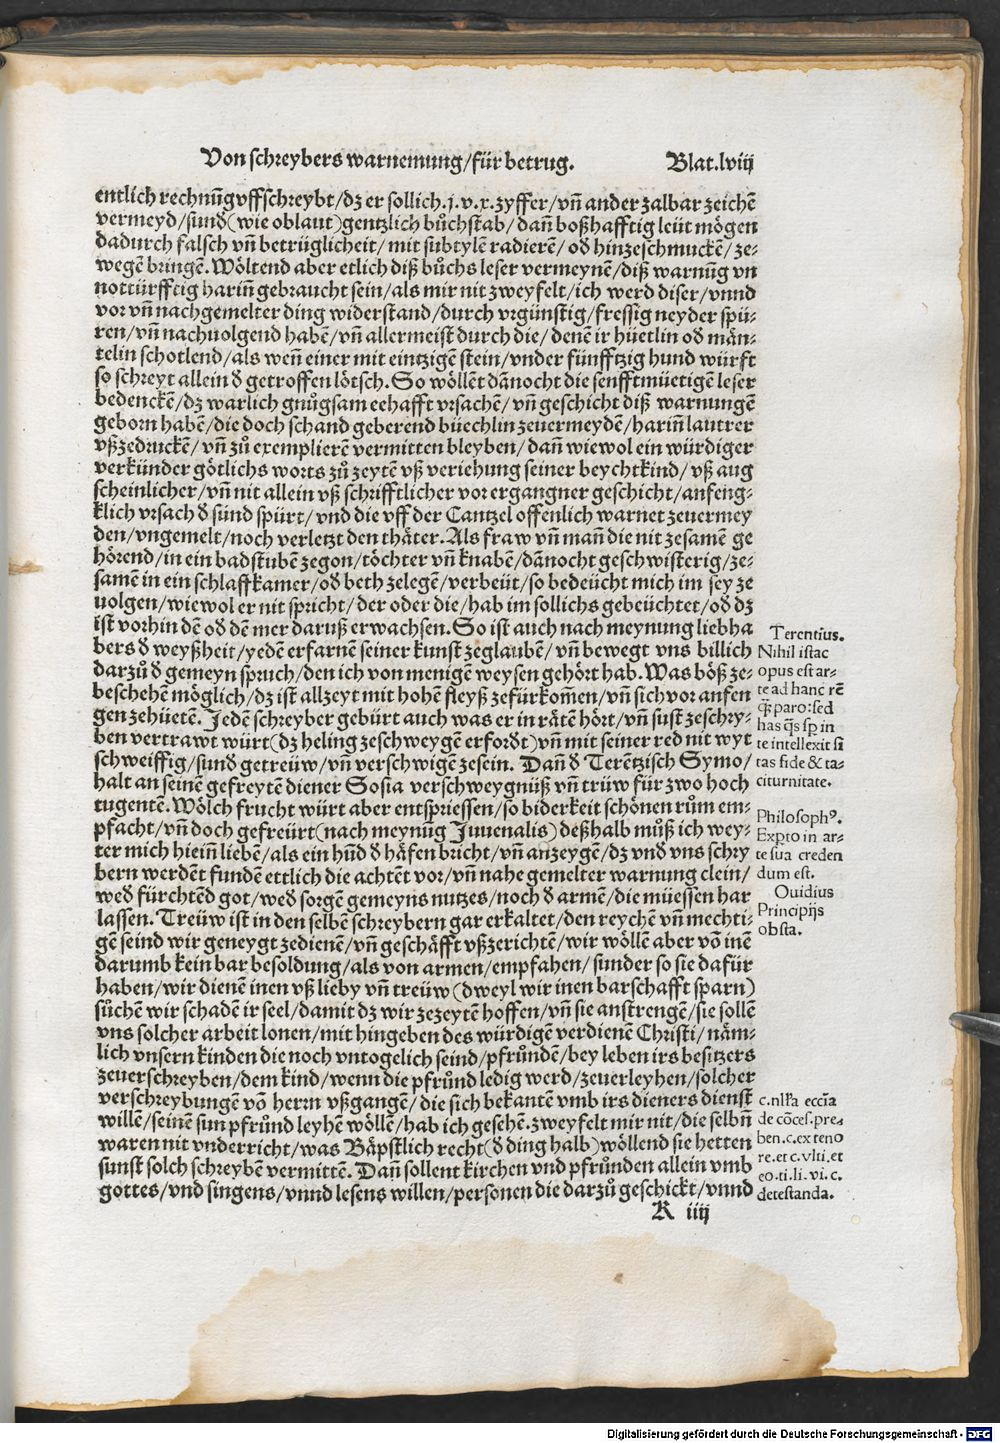 Von schreybers warnemung/für betrug. Blat.lviij
entlich rechnūg vffschreybt/dz er sollich.j.v.x.zyffer/vn̄ ander zalbar zeichē
vermeyd/sund(wie oblaut)gentzlich bůchstab/dan̄ boßhafftig leüt mögen
dadurch falsch vn̄ betrüglicheit/mit subtylē radierē/od hinzeschmuckē/ze-
wegē bringē.Wöltend aber etlich diß bůchs leser vermeynē/diß warnūg vn
nottürfftig harin̄ gebraucht sein/als mir nit zweyfelt/ich werd diser/vnnd
vor vn̄ nachgemelter ding widerstand/durch vrgünstig/fressig neyder spü-
ren/vn̄ nachuolgend haben/vn̄ allermeist durch die/denē ir hüetlin od män-
telin schotlend/als wen̄ einer mit eintzigē stein/vnder fünfftzig hund würft
so schreyt allein d getroffen lötsch.So wöllēt dānocht die senfftmüetigē leser
bedenckē/dz warlich gnůgsam eehafft vrsachē/vn̄ geschicht diß warnungē
geborn haben/die doch schand geberend büechlin zeuermeydē/harin̄ lautrer
vßzedruckē/vn̄ zů exemplierē vermitten bleyben/dan̄ wiewol ein würdiger
verkünder götlichs worts zů zeytē vß veriehung seiner beychtkind/vß aug
scheinlicher/vn̄ nit allein vß schrifftlicher vor ergangner geschicht/anfeng-
klich vrsach d sünd spürt/vnd die vff der Cantzel offenlich warnet zeuermey
den/vngemelt/noch verletzt den thäter.Als fraw vn̄ man̄ die nit zesamē ge
hörend/in ein badstubē zegon/töchter vn̄ knabē/dānocht geschwisterig/ze-
samē in ein schlaffkamer/od beth zelegē/verbeüt/so bedeücht mich im sey ze
uolgen/wiewol er nit spricht/der oder die/hab im sollichs gebeüchtet/od dz
ist vorhin dē od dē mer daruß erwachsen.So ist auch nach meynung liebha
bers d weyßheit/yedē erfarnē seiner kunst zeglaubē/vn̄ bewegt vns billich
darzů d gemeyn spruch/den ich von menigē weysen gehört hab.Was böß ze-
beschehē möglich/dz ist allzeyt mit hohē fleyß zefürkom̄en/vn̄ sich vor anfen
gen zehüetē. Jedē schreyber gebürt auch was er in rätē hört/vn̄ sust zeschry-
ben vertrawt würt(dz heling zeschweygē erfordt)vn̄ mit seiner red nit wyt
schweiffig/sund getreüw/vn̄ verschwigē zesein. Dan̄ d Terētzisch Symo/
halt an seinē gefreytē diener Sosia verschweygnüß vn̄ trüw für zwo hoch
tugentē.Wölch frucht würt aber entspriessen/so biderkeit schönen rům em-
pfacht/vn̄ doch gefreürt(nach meynūg Juuenalis)deßhalb můß ich wey-
ter mich hiein̄ liebē/als ein hūd d häfen bricht/vn̄ anzeygē/dz vnd vns schry
bern werdēt fundē ettlich die achtēt vor/vn̄ nahe gemelter warnung clein/
wed fürchtēd got/wed sorgē gemeyns nutzes/noch d armē/die müessen har
lassen.Treüw ist in den selbē schreybern gar erkaltet/den reychē vn̄ mechti-
gē seind wir geneygt zedienē/vn̄ geschäfft vßzerichtē/wir wöllē aber vō inē
darumb kein bar besoldung/als von armen/empfahen/sunder so sie dafür
haben/wir dienē inen vß lieby vn̄ treüw(dweyl wir inen barschafft sparn)
sůchēn wir schadē ir seel/damit dz wir zezeytē hoffen/vn̄ sie anstrengē/sie sollē
vns solcher arbeit lonen/mit hingeben des würdigē verdienē Christi/näm-
lich vnsern kinden die noch vntogelich seind/pfrůndē/bey leben irs besitzers
zeuerschreyben/dem kind/wenn die pfrůnd ledig werd/zeuerleyhen/solcher
verschreybungē vō herrn vßgangē/die sich bekantē vmb irs dieners dienst
willē/seinē sun pfrůnd leyhē wöllē/hab ich gesehē.zweyfelt mir nit/die selbn̄
waren nit vnderricht/was Bäpstlich recht(d ding halb)wöllend sie hetten
sunst solch schreybē vermittē.Dan̄ sollent kirchen vnd pfrůnden allein vmb
gottes/vnd singens/vnnd lesens willen/personen die darzů geschickt/vnnd
K iiij
Terentius.
Nihil istac
opus est ar-
te ad hanc rē
q̄ paro:sed
has q̄s sp in
te intellexit si
tas fide & ta-
citurnitate.
Philosophꝰ.
Expto in ar-
te sua creden
dum est.
Ouidius
Principijs
obsta.
c.nlla eccīa
de cōces.pre-
ben.c.ex teno
re.et c.vlti.et
eo.ti.li.vi.c.
detestanda.
Digitalisierung gefördert durch die Deutsche Forschungsgemeinschaft - DFG